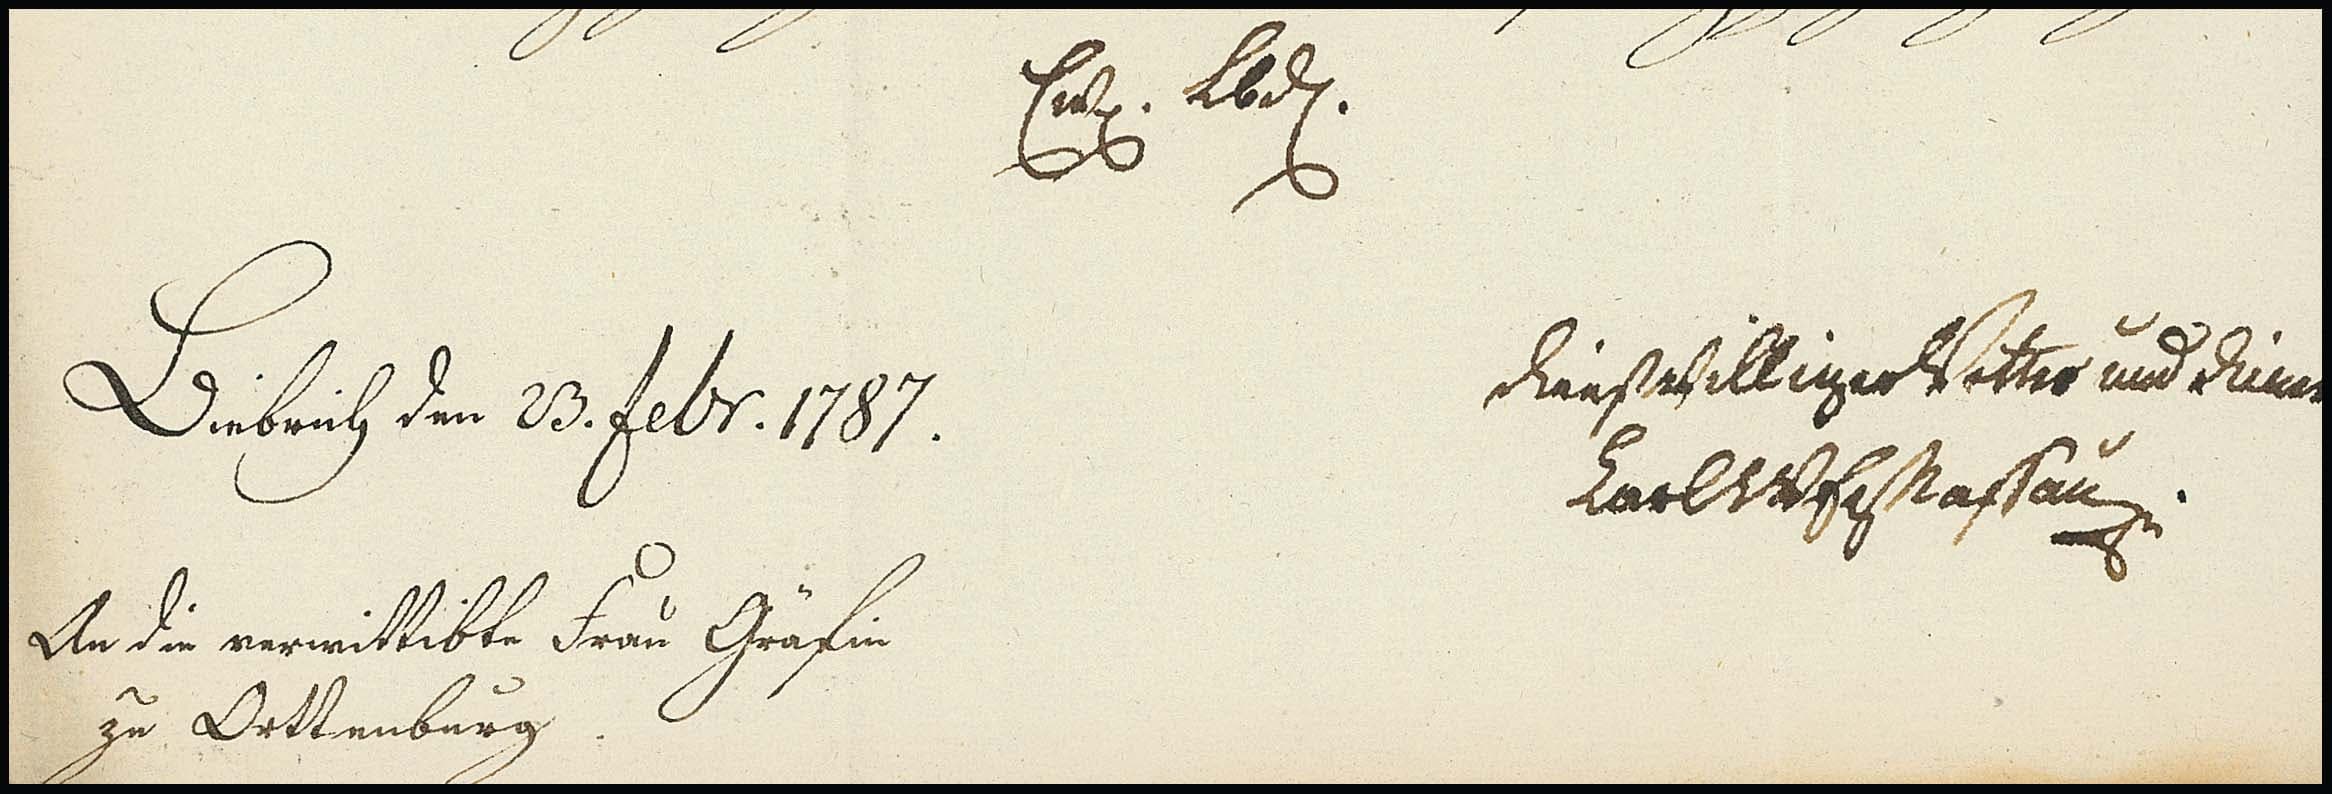 Ew. Lbd.
Biebrich den 23. Febr. 1787.
dienstwilliger Vetter und diener
Carl W F z Nassau
An die verwittibte Frau Gräfin
zu Orttenburg.